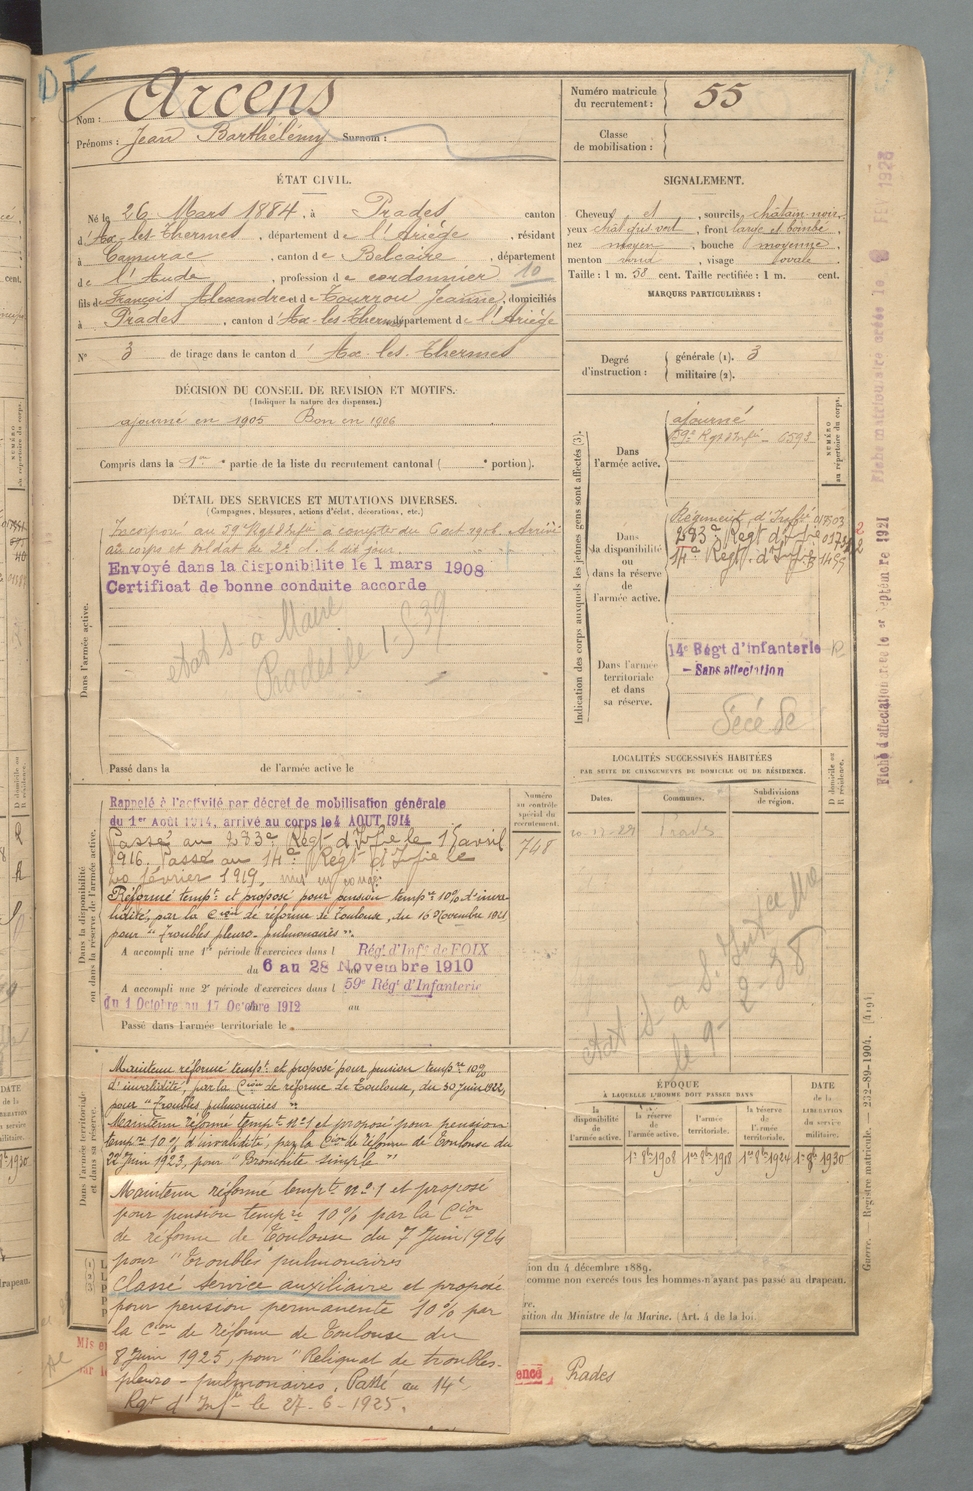 Nom : Arcens
Prénoms : Jean Barthélémy Surnom :
Numéro matricule du recrutement : 55
Classe de mobilisation :
ÉTAT CIVIL.
Né le 26 Mars 1884, à Prades canton
d'Ax-les-Thermes, département de l'Ariége, résidant
à Camurac, canton de Belcaire, département
de l'Aude, profession de cordonnier 10
fils de François Alexandre et de Tourrou Jeanne, domiciliés
à Prades, canton d'Ax-les-Thermes département de l'Ariége
N° 3 de tirage dans le canton d'Ax-les-Thermes
SIGNALEMENT.
Cheveux et , sourcils châtain-noir
yeux chat gris vert, front large et bombé
nez moyen, bouche moyenne
menton rond, visage ovale
Taille : 1 m. 58 cent. Taille rectifiée : 1 m. cent.
MARQUES PARTICULIÈRES :
Degré d'instruction : générale (1). 3
militaire (2).
DÉCISION DU CONSEIL DE REVISION ET MOTIFS.
(Indiquer la nature des dispenses.)
ajourné en 1905 Bon en 1906
Compris dans la 1re partie de la liste du recrutement cantonal ( portion).
DÉTAIL DES SERVICES ET MUTATIONS DIVERSES.
(Campagnes, blessures, actions d'éclat, décorations, etc.)
Incorporé au 59 Régt d'Infie à compter du 6 oct 1906. Arrivé
au corps et soldat de 2e cl. le dit jour.
Envoyé dans la disponibilite le 1 mars 1908
Certificat de bonne conduite accorde
état S- à Maire
Prades le 1-5-39
Dans l'armée active.
Passé dans la de l'armée active le
Indication des corps auxquels les jeunes gens sont affectés (3).
NUMÉRO au répertoire du corps.
Dans l'armée active.
ajourné
59e Régt d'Infie 6593
Dans la disponibilité ou dans la réserve de l'armée active.
Régiment d'Infie 017503
283e Régt d'Infie
14e Régt d'Infie
Dans l'armée territoriale et dans sa réserve.
14e Régt d'Infanterie R
- Sans affectation
Décédé
LOCALITÉS SUCCESSIVES HABITÉES
PAR SUITE DE CHANGEMENTS DE DOMICILE OU DE RÉSIDENCE.
Dates. Communes. Subdivisions de région. D domicile ou R résidence.
Prades
le 9-2-38
Dans la disponibilité ou dans la réserve de l'armée active.
Numéro au contrôle spécial du recrutement.
748
Rappelé à l'activité par décret de mobilisation générale
du 1er Août 1914, arrivé au corps le 4 AOUT 1914
Passé au 283e Régt d'Infie le 15 avril
1916. Passé au 14e Régt d'Infie le
20 février 1919, mis en congé
Réformé tempre et proposé pour pension tempre 10% d'inva-
lidité, par la Cion de réforme de Toulouse, du 16 Novembre 1921
pour "Troubles pleuro-pulmonaires".
A accompli une 1re période d'exercices dans l Régt d'Infie de FOIX
du 6 au 28 Novembre 1910
A accompli une 2e période d'exercices dans l 59e Régt d'Infanterie
du 1 Octobre au 17 Octobre 1912 au
Passé dans l'armée territoriale le
Dans l'armée territoriale et dans sa réserve.
Maintenu réformé tempre et proposé pour pension tempre 10%
d'invalidité, par la Cion de réforme de Toulouse, du 30 Juin 1922,
pour "Troubles pulmonaires"
Maintenu réformé tempre n°1 et proposé pour pension
tempre 10% d'invalidité par la Cion de réforme de Toulouse du
22 Juin 1923, pour "Bronchite simple"
Maintenu réformé tempt n°1 et proposé
pour pension tempre 10% par la Cion
de réforme de Toulouse du 7 Juin 1924
pour "Troubles pulmonaires
Classé service auxiliaire et proposé
pour pension permanente 10% par
la Cion de réforme de Toulouse du
8 Juin 1925, pour "Reliquat de troubles-
pleuro-pulmonaires. Passé au 14e
Rgt d'Infie le 27-6-1925.
ÉPOQUE
À LAQUELLE L'HOMME DOIT PASSER DANS
la disponibilité de l'armée active. la réserve de l'armée active. l'armée territoriale. la réserve de l'armée territoriale. DATE de la LIBÉRATION du service militaire.
1er 8bre 1908 1er 8bre 1918 1er 8bre 1924 1er 8bre 1930
ion du 4 décembre 1889.
comme non exercés tous les hommes n'ayant pas passé au drapeau.
sition du Ministre de la Marine. (Art. 4 de la loi.
Prades
Guerre. Registre matricule. — 232-89-1904. [4194]